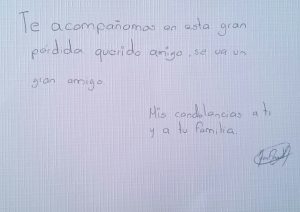 Te acompañamos en esta gran
pérdida querido amigo, se va un
gran amigo.
Mis condolencias a ti
y a tu familia.